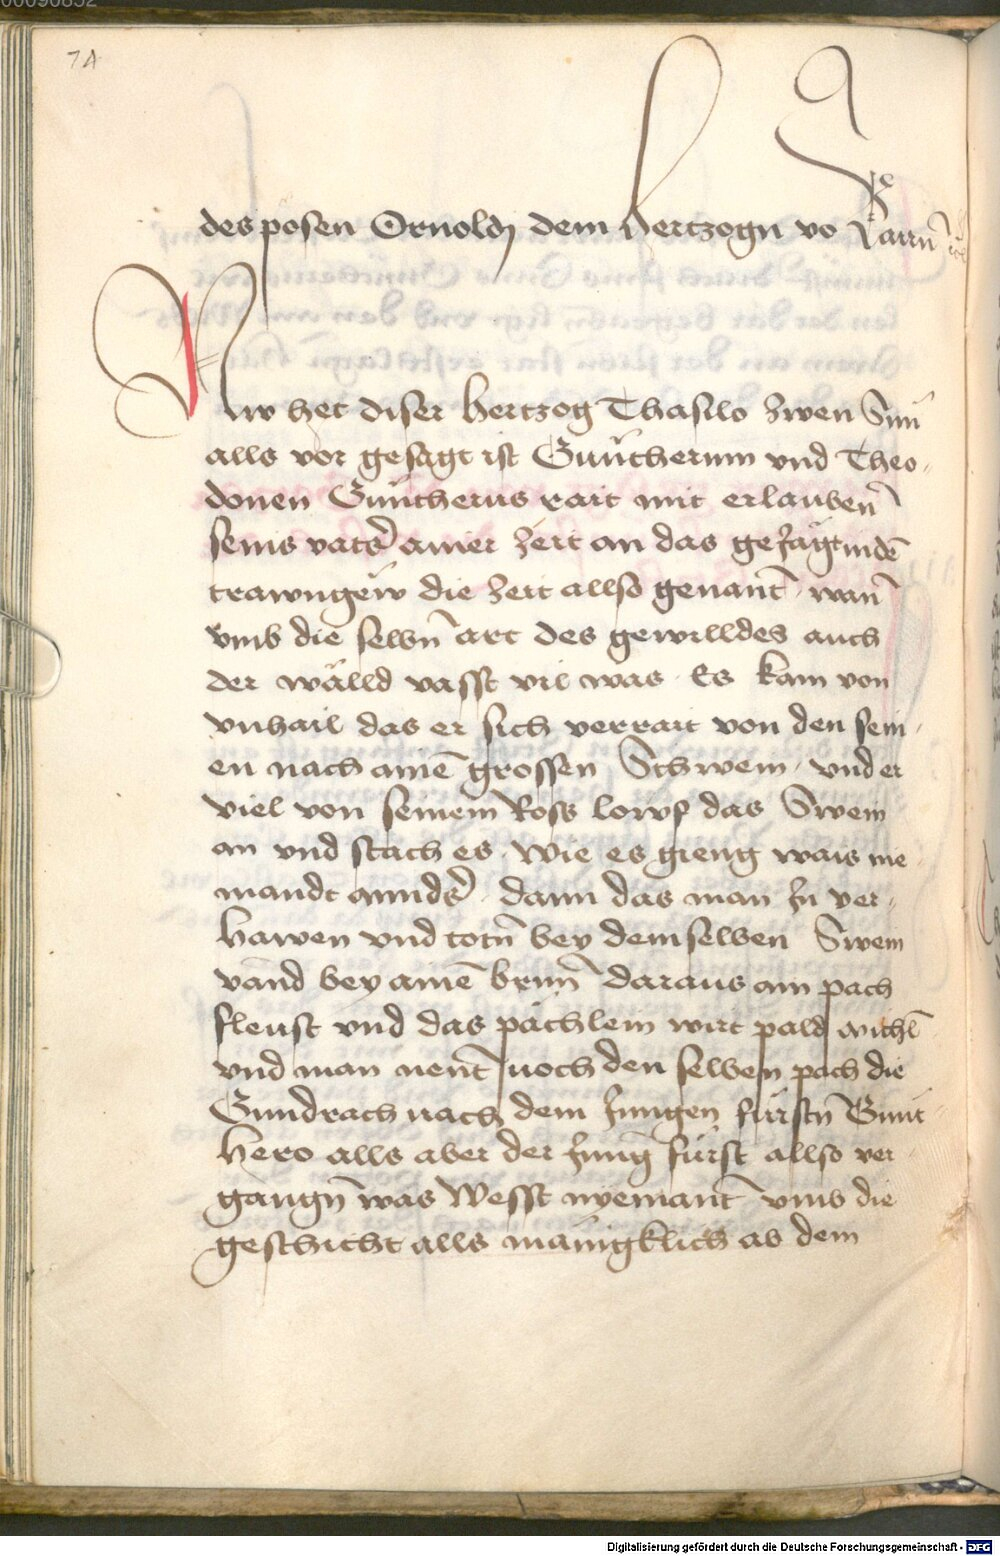 74
des posen Ornoldj dem hertzogn vo karrn
Nuv het diser hertzog Thasilo zwen Sun
alls vor gesagt ist Guntherum vnd Theo
donen Guntherus rait mit erlauben
seins vaters ainer zeit an das gejägt in den
trawngew die zeit allso genant wan
vmb die selbn art des gewilldes auch
der wälld vasst vil was Es kam von
vnhail das er sich verrait von den sein
en nach aine grossen Schwein vnd er
viel von seinem Ross lorff das Swein
an vnd stach es Wie es gieng wais nie
mandt annders dann das man In ver
hawen vnd totn bey demselben Swein
vand bey aine brunn daraus ain pach
fleust vnd das pächlein wirt pald michl
vnd man nent noch den selben pach die
Gundrach nach dem Jungen fürstn Gunt
hero alls aber der Jung fürst allso ver
gangn was Wesst nyemant vmb die
geschicht alls mänigklich ab dem
00090852
Digitalisierung gefördert durch die Deutsche Forschungsgemeinschaft - DFG